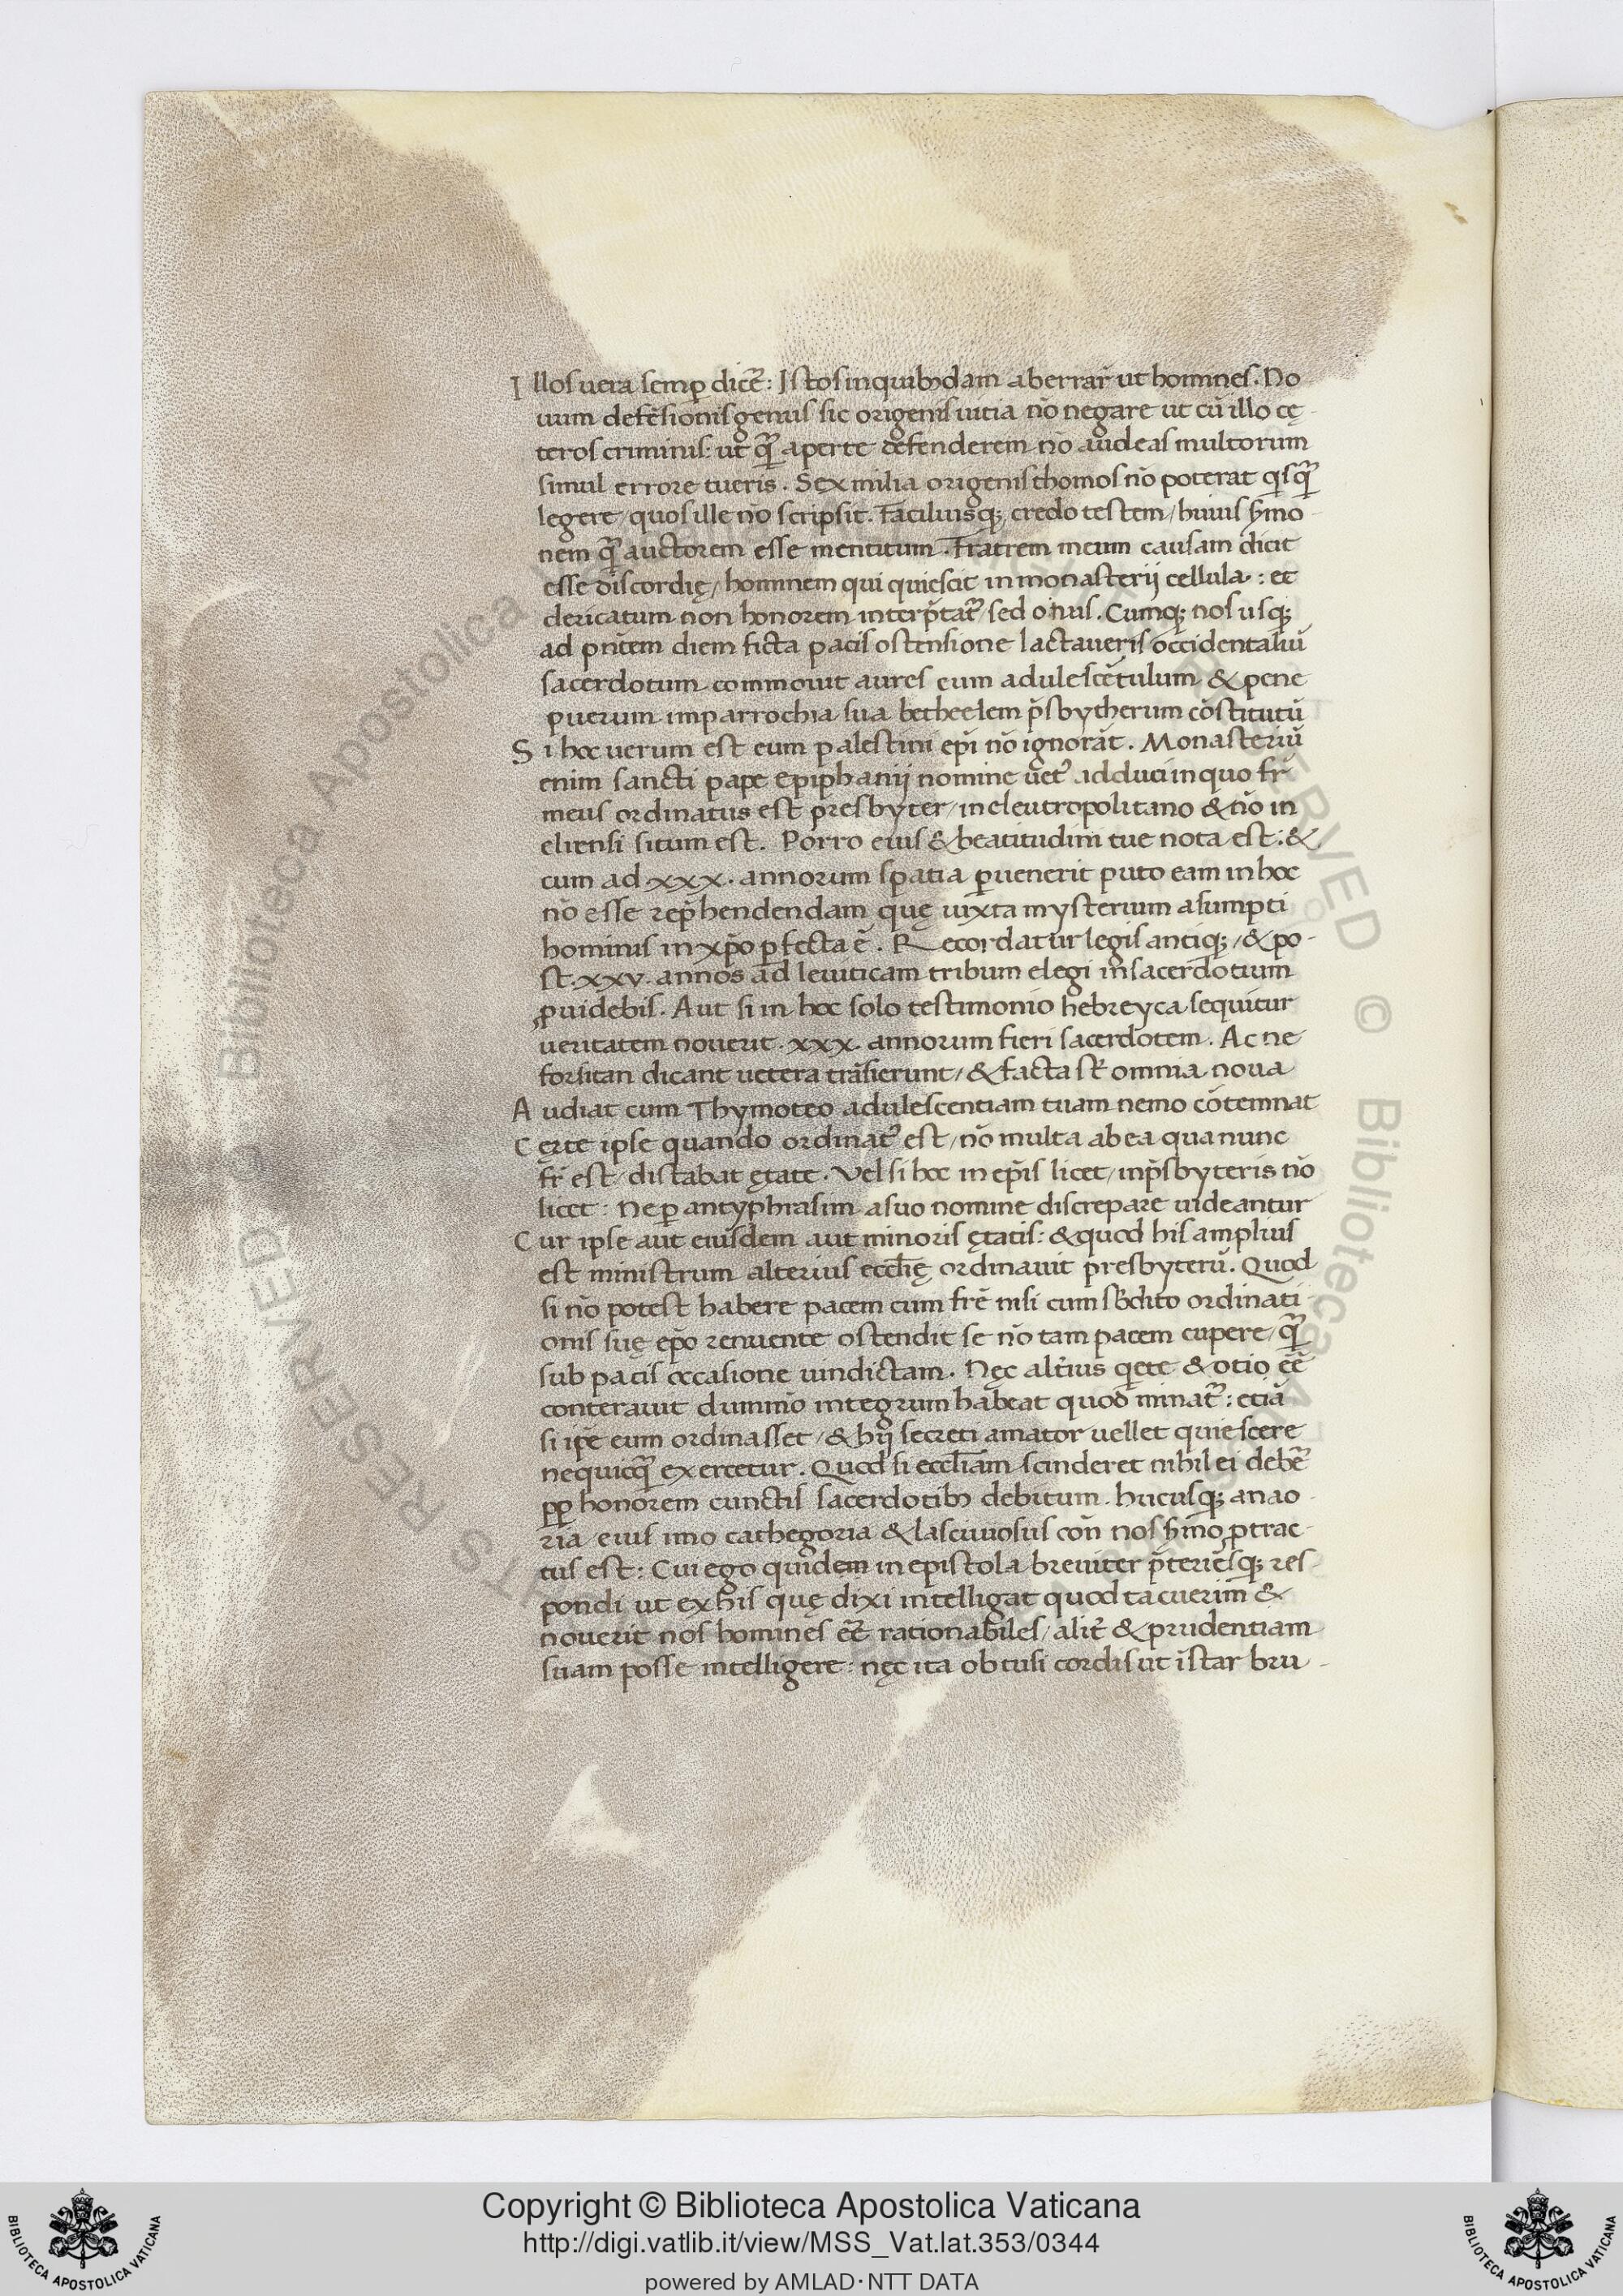 Illos uera semp dicẽ: Istos in quibꝫdam aberrar̃ ut homines. No
uum defẽsionis genus sic origenis uitia nõ negare ut cũ illo cę
teros criminis: ut qᷓ aperte defenderem nõ audeas multorum
simul errore tueris. Sex milia origenis thomos nõ poterat qisqᷓ
legere/quos ille nõ scripsit. Faciliusqꝫ credo testem/huius s̃mo
nem qᷓ auctorem esse mentitum. Fratrem meum causam dicit
esse discordię/hominem qui quiescit in monasterij cellula: et
clericatum non honorem interp̃tat᷑/sed onus. Cumqꝫ nos usqꝫ
ad pñtem diem ficta pacis ostensione lactaueris occidentaliũ
sacerdotum commouit aures eum adulescẽtulum & pene
puerum imparrochia sua betheelem p̃sbytherum cõstitutũ
Si hoc uerum est eum palestini ep̃i nõ ignorãt. Monasteriũ
enim sancti pape epiphanij nomine uet᷑ adduci in quo fr̃
meus ordinatus est presbyter/in eleutropolitano & nõ in
eliensi situm est. Porro eius & beatitudini tue nota est: &
cum ad xxx. annorum spatia ꝑuenerit puto eam in hoc
nõ esse rep̃hendendam quę iuxta mysterium asumpti
hominis in xp̃o ꝑfecta ẽ. Recordatur legis antiqꝫ/& po-
st .xxv. annos ad leuiticam tribum elegi in sacerdotium
ꝓuidebis. Aut si in hoc solo testimonio hebreyca sequitur
ueritatem nouerit .xxx. annorum fieri sacerdotem. Ac ne
forsitan dicant uetera trãsierunt/& facta st̃ omnia noua
Audiat cum Thymoteo adulescentiam tuam nemo cõtemnat
Certe ipse quando ordinat᷑ est/nõ multa ab ea qua nunc
fr̃ est/distabat ętate. Vel si hoc in ep̃is licet/inp̃sbyteris nõ
licet: Ne ꝑ antyphrasim asuo nomine discrepare uideantur
Cur ipse aut eiusdem aut minoris ętatis: & quod his amplius
est ministrum alterius eccl̃ię ordinauit presbyterũ. Quod
si nõ potest habere pacem cum fr̃e nisi cum sb̃dito ordinati
onis suę ep̃o renuente ostendit se nõ tam pacem cupere/qᷓ
sub pacis occasione uindictam. Nęc alt̃ius qete & otio eẽ
conterauit dummõ integrum habeat quod minat᷑: etiã
si ip̃e eum ordinasset/& hij secreti amator uellet quiescere
nequicqᷓ exercetur. Quod si eccl̃iam scinderet nihil ei debẽ
ꝑꝑ honorem cunctis sacerdotibꝫ debitum. hucusqꝫ anao
ria eius imo cathegoria & lasciuiosus con̄ nos s̃mo ꝓtrac-
tus est: Cui ego quidem in epistola breuiter p̃teriẽsqꝫ res
pondi ut ex his quę dixi intelligat quod tacuerim &
nouerit nos homines eẽ rationabiles/alit̃ & prudentiam
suam posse intelligere: nęc ita obtusi cordis ut ĩstar bru
Copyright © Biblioteca Apostolica Vaticana
http://digi.vatlib.it/view/MSS_Vat.lat.353/0344
powered by AMLAD·NTT DATA
BIBLIOTECA APOSTOLICA VATICANA
BIBLIOTECA APOSTOLICA VATICANA